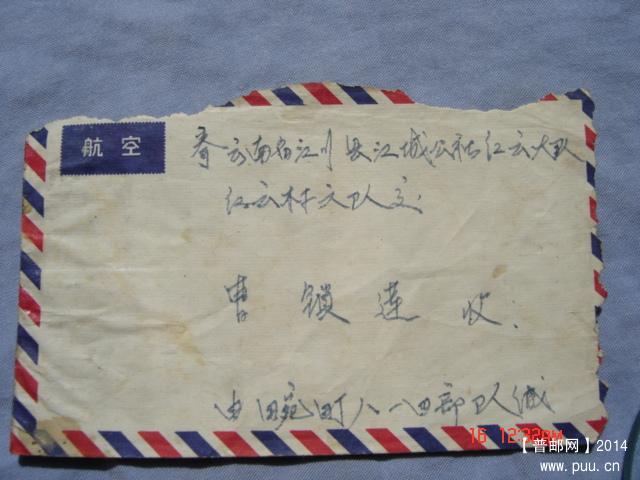 航空
寄云南省江川县江城公社红云大队
红云村六队交
曹锁莲收.
由畹町八一四部队缄
16 12:22PM
【普邮网】2014
www.puu.cn